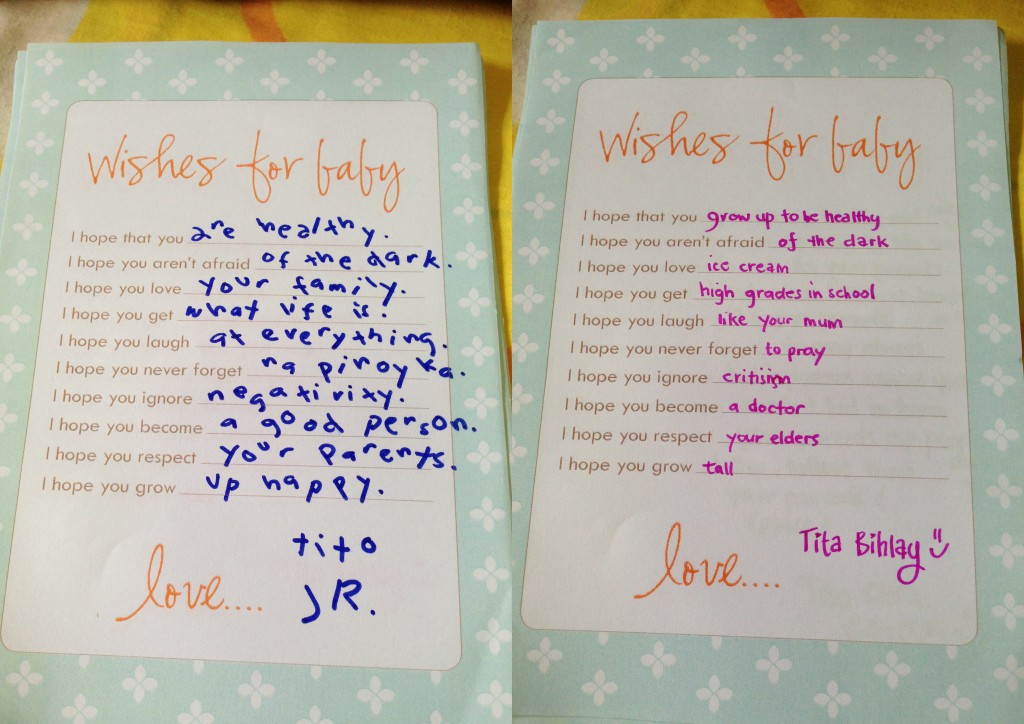 wishes for baby
I hope that you are healthy.
I hope you aren't afraid of the dark.
I hope you love your family.
I hope you get what life is.
I hope you laugh at everything.
I hope you never forget na pinoy ka.
I hope you ignore negativity.
I hope you become a good person.
I hope you respect your parents.
I hope you grow up happy.
love....
tito
JR.
wishes for baby
I hope that you grow up to be healthy
I hope you aren't afraid of the dark
I hope you love ice cream
I hope you get high grades in school
I hope you laugh like your mum
I hope you never forget to pray
I hope you ignore critisism
I hope you become a doctor
I hope you respect your elders
I hope you grow tall
love....
Tita Bihlay